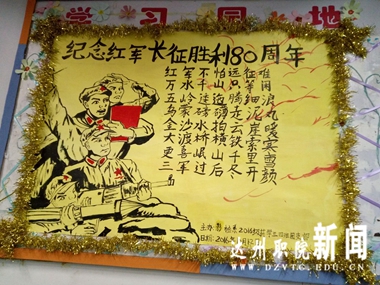 学习园地
纪念红军长征胜利80周年
红军不怕远征难
万水千山只等闲
五岭逶迤腾细浪
乌蒙磅礴走泥丸
金沙水拍云崖暖
大渡桥横铁索寒
更喜岷山千里雪
三军过后尽开颜
主办: 2016级药学
日期: 2016年
达州职院新闻
DZVTC.EDU.CN